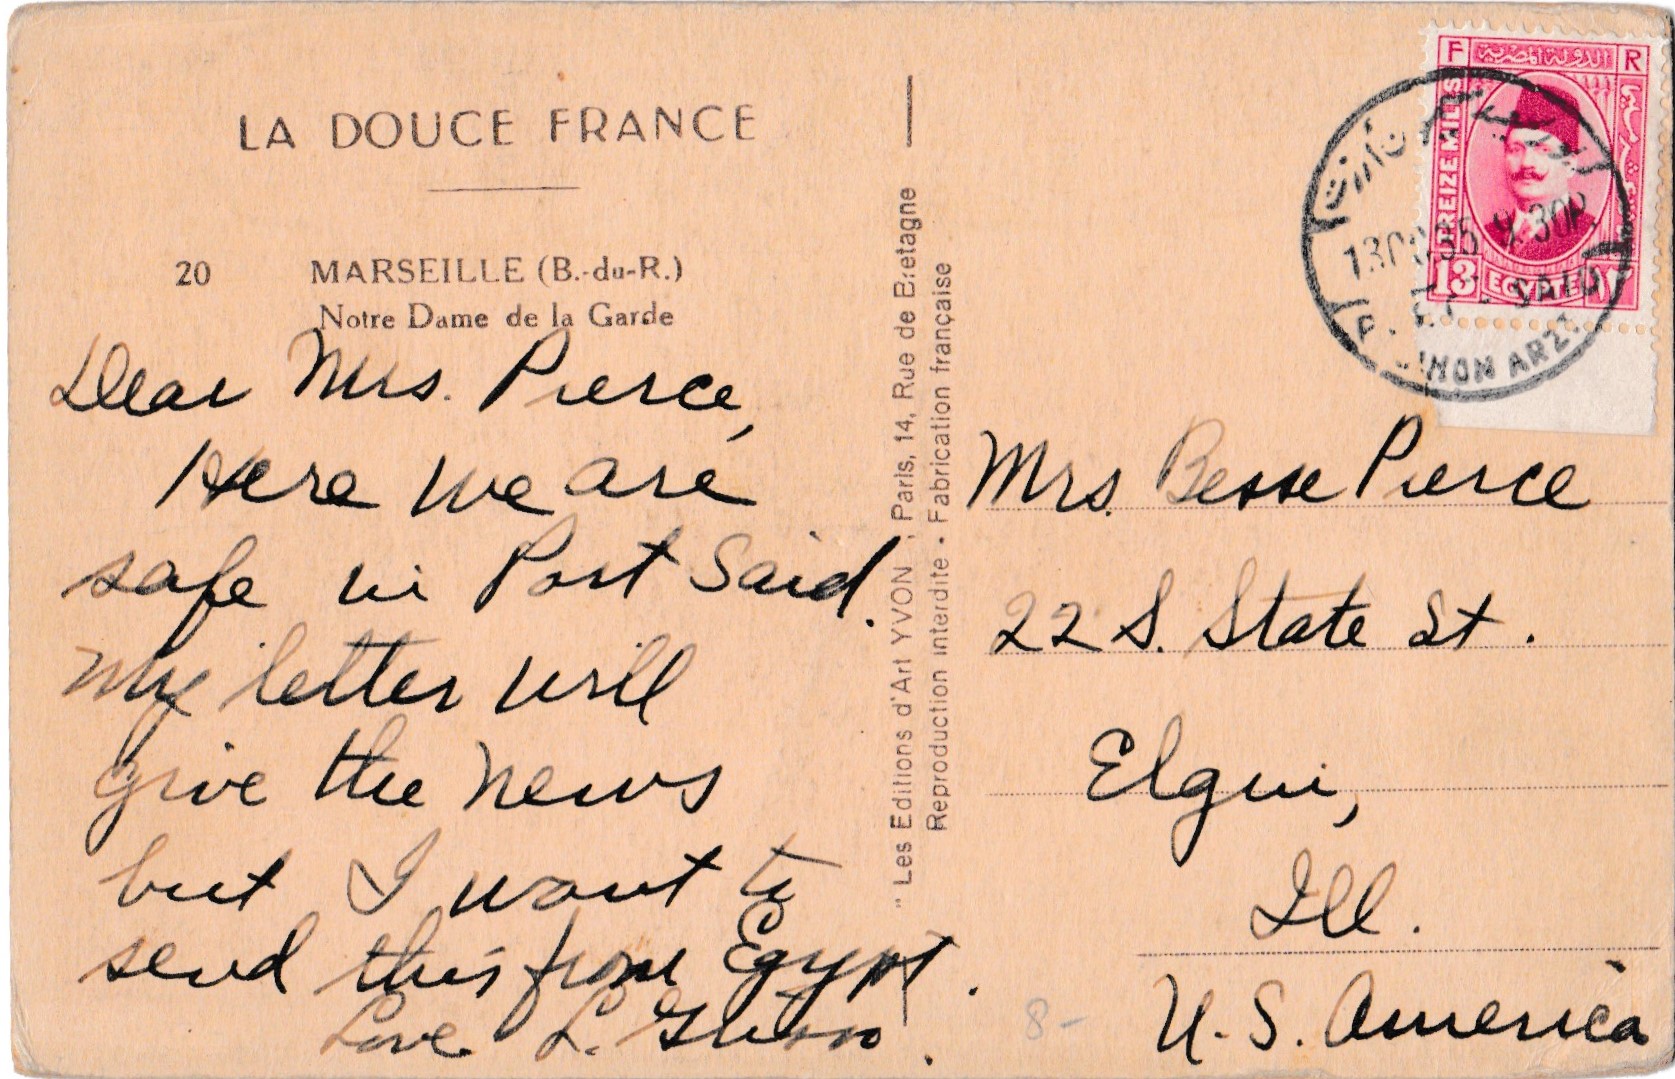 LA DOUCE FRANCE
20 MARSEILLE (B.-du-R.)
Notre Dame de la Garde
Dear Mrs. Pierce,
Here we are
safe in Port Said.
My letter will
give the news
but I want to
send this from Egypt.
Love L.
" Les Editions d'Art YVON Paris, 14, Rue de Bretagne
Reproduction interdite - Fabrication française
F الدولة المصرية R
TREIZE MILLS
13 EGYPTE ١٣
SIMON ARZT
Mrs. Besse Pierce
22 S. State St.
Elgin,
Ill.
U. S. America
8-